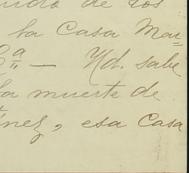 uido de los
la Casa Mar
C.ª — Vd. sabe
la muerte de
tínez, esa Casa